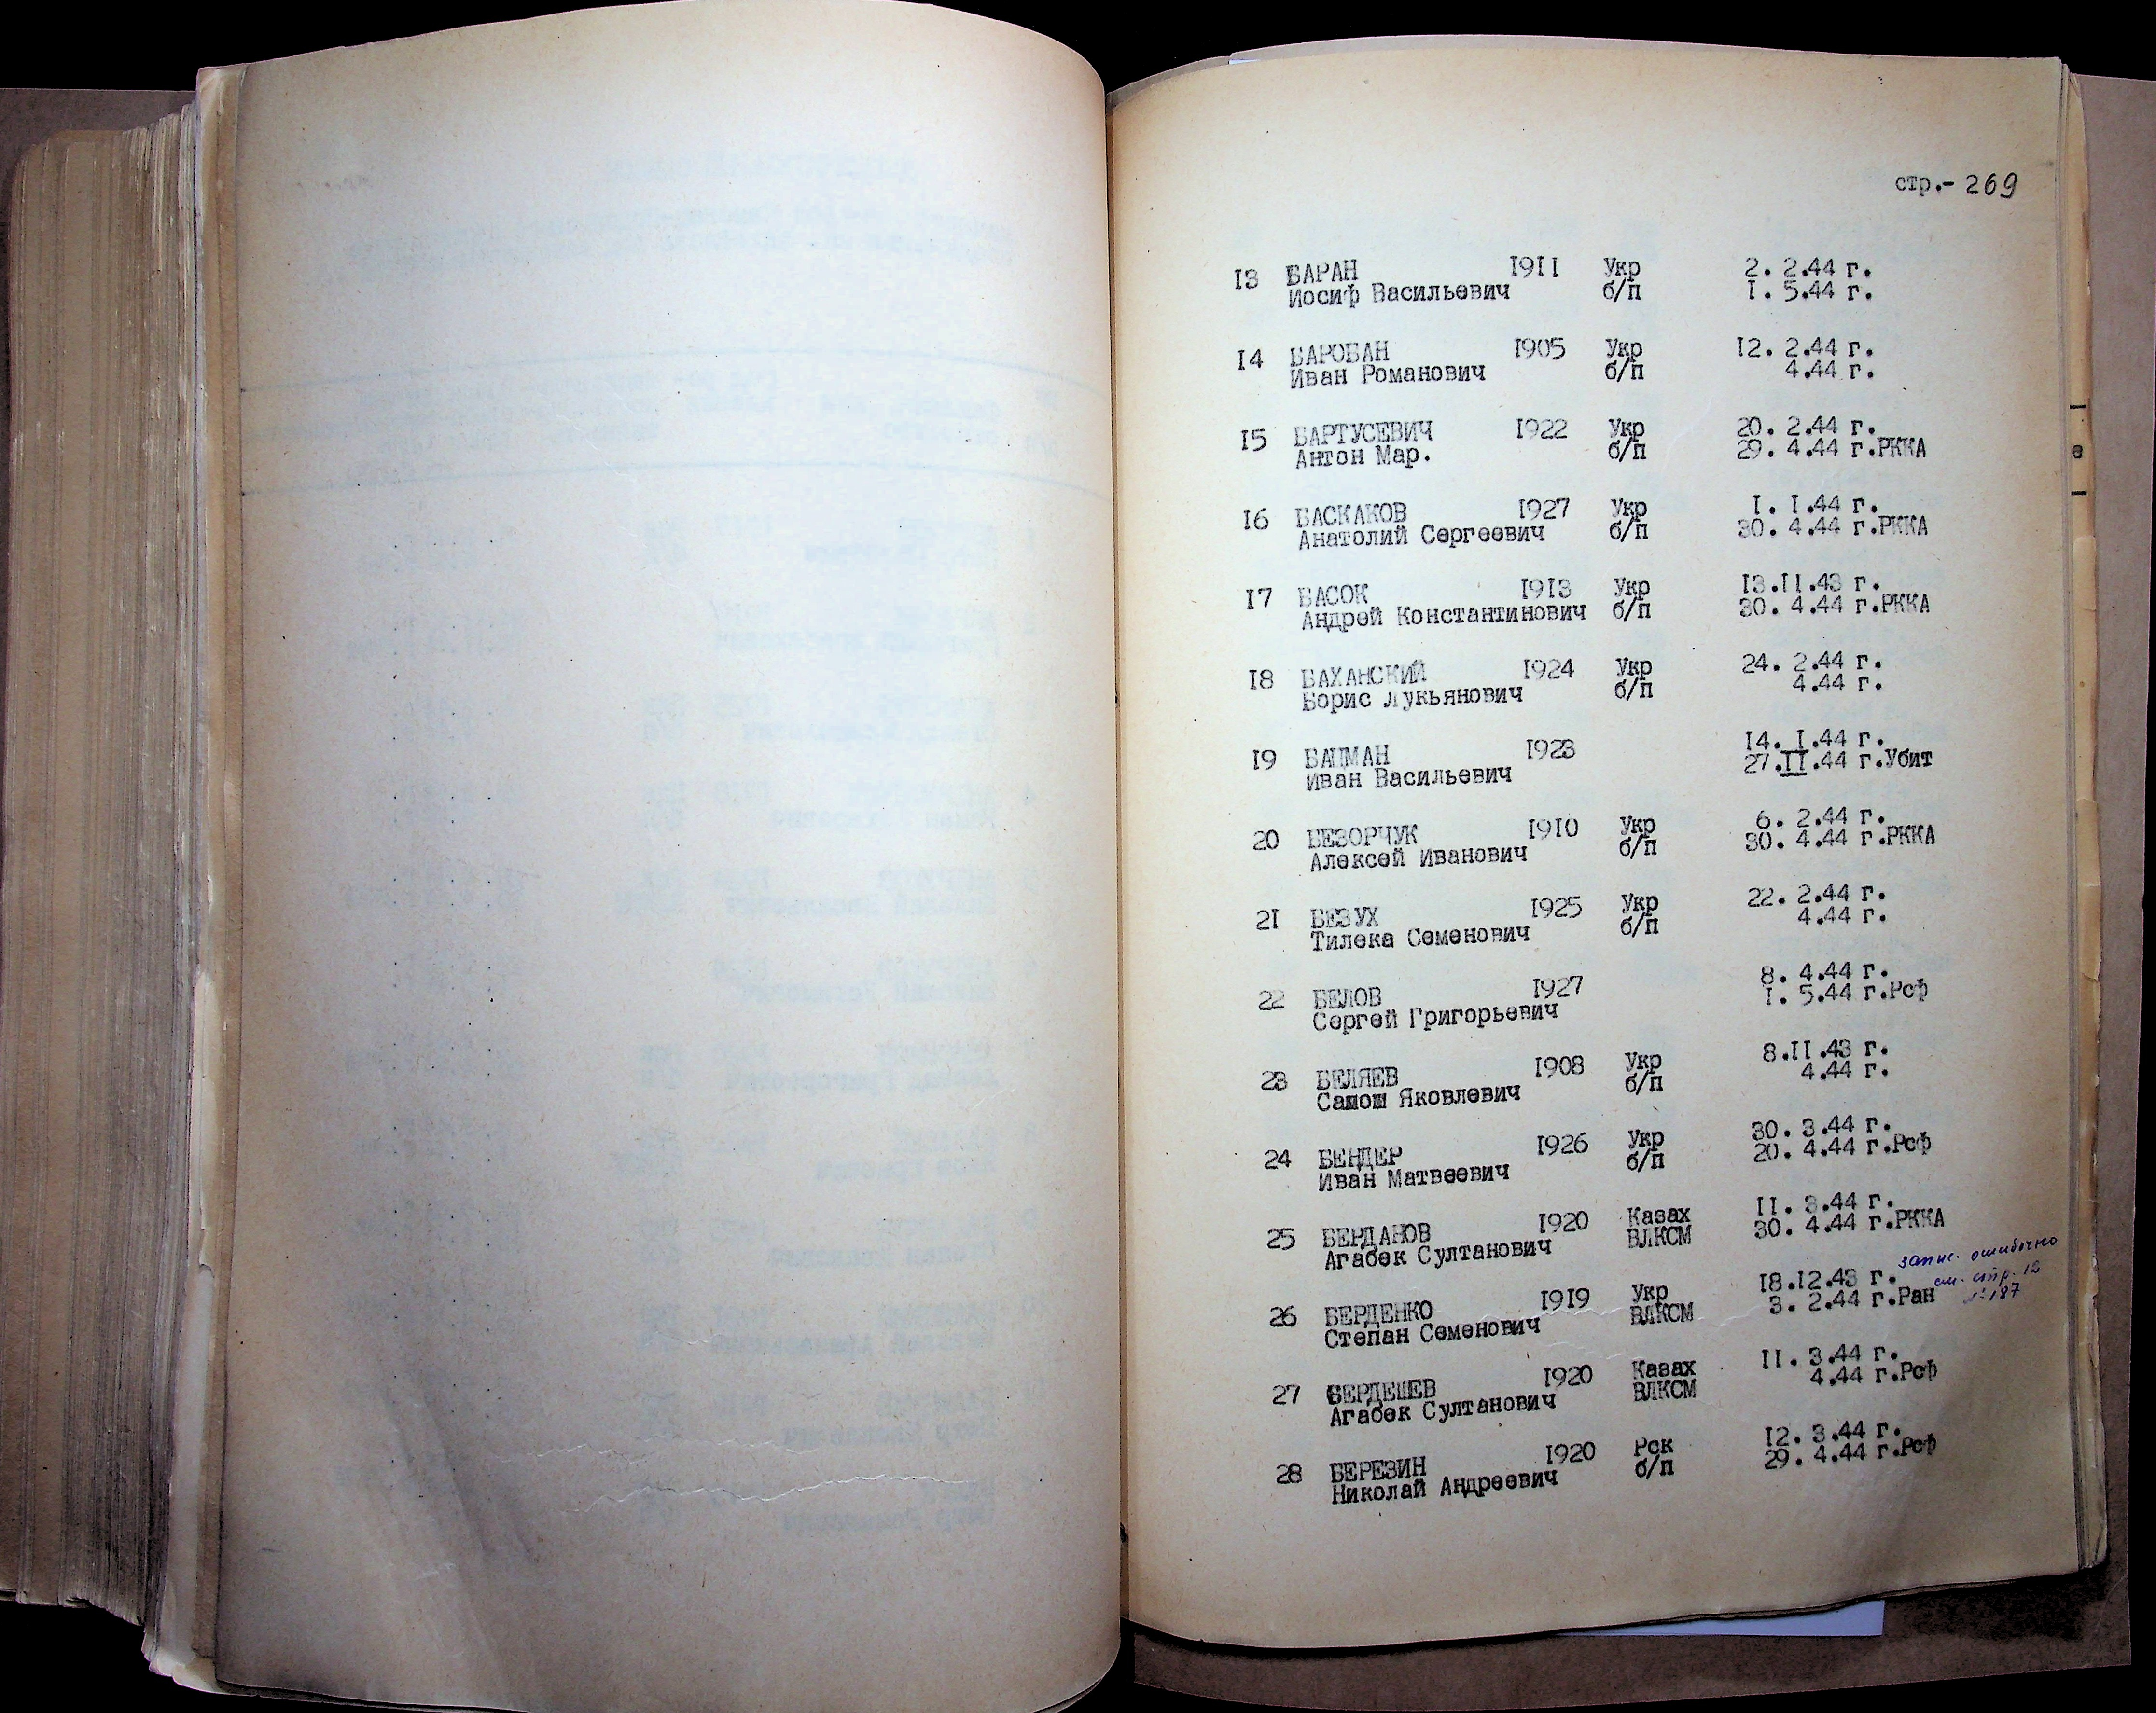 стр.- 269
13 БАРАН 1911 Укр 2. 2.44 г.
Иосиф Васильевич б/п 1. 5.44 г.
14 БАРОБАН 1905 Укр 12. 2.44 г.
Иван Романович б/п 4.44 г.
15 БАРТУСЕВИЧ 1922 Укр 20. 2.44 г.
Антон Мар. б/п 29. 4.44 г.РККА
16 БАСКАКОВ 1927 Укр 1. 1.44 г.
Анатолий Сергеевич б/п 30. 4.44 г.РККА
17 БАСОК 1913 Укр 13.11.43 г.
Андрей Константинович б/п 30. 4.44 г.РККА
18 БАХАНСКИЙ 1924 Укр 24. 2.44 г.
Борис Лукьянович б/п 4.44 г.
19 БАЦМАН 1923 14. 1.44 г.
Иван Васильевич 27.II.44 г.Убит
20 БЕЗОРЧУК 1910 Укр 6. 2.44 г.
Алексей Иванович б/п 30. 4.44 г.РККА
21 БЕЗУХ 1925 Укр 22. 2.44 г.
Тилека Семенович б/п 4.44 г.
22 БЕЛОВ 1927 8. 4.44 г.
Сергей Григорьевич 1. 5.44 г.Рсф
23 БЕЛЯЕВ 1908 Укр 8.11.43 г.
Самош Яковлевич б/п 4.44 г.
24 БЕНДЕР 1926 Укр 30. 3.44 г.
Иван Матвеевич б/п 20. 4.44 г.Рсф
25 БЕРДАНОВ 1920 Казах 11. 3.44 г.
Агабек Султанович ВЛКСМ 30. 4.44 г.РККА
запис. ошибочно
см. стр. 12
№ 187
26 БЕРДЕНКО 1919 Укр 18.12.43 г.
Степан Семенович ВЛКСМ 3. 2.44 г.Ран
27 БЕРДЕШЕВ 1920 Казах 11. 3.44 г.
Агабек Султанович ВЛКСМ 4.44 г.Рсф
28 БЕРЕЗИН 1920 Рск 12. 3.44 г.
Николай Андреевич б/п 29. 4.44 г.Рсф